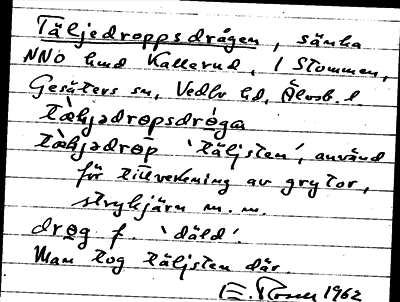 Täljedroppsdrågen, sänka
NNO hmd Kallerud, i Stommen,
Gesäters sn, Vedbo hd, Älvsb. l
tæ̀ljədrɵpsdrɵ̀ga
tæ̀ljədrɵ̀p 'täljsten', använd
för tillverkning av grytor,
strykjärn m. m.
drɵg f. 'däld'.
Man tog täljsten där.
1962